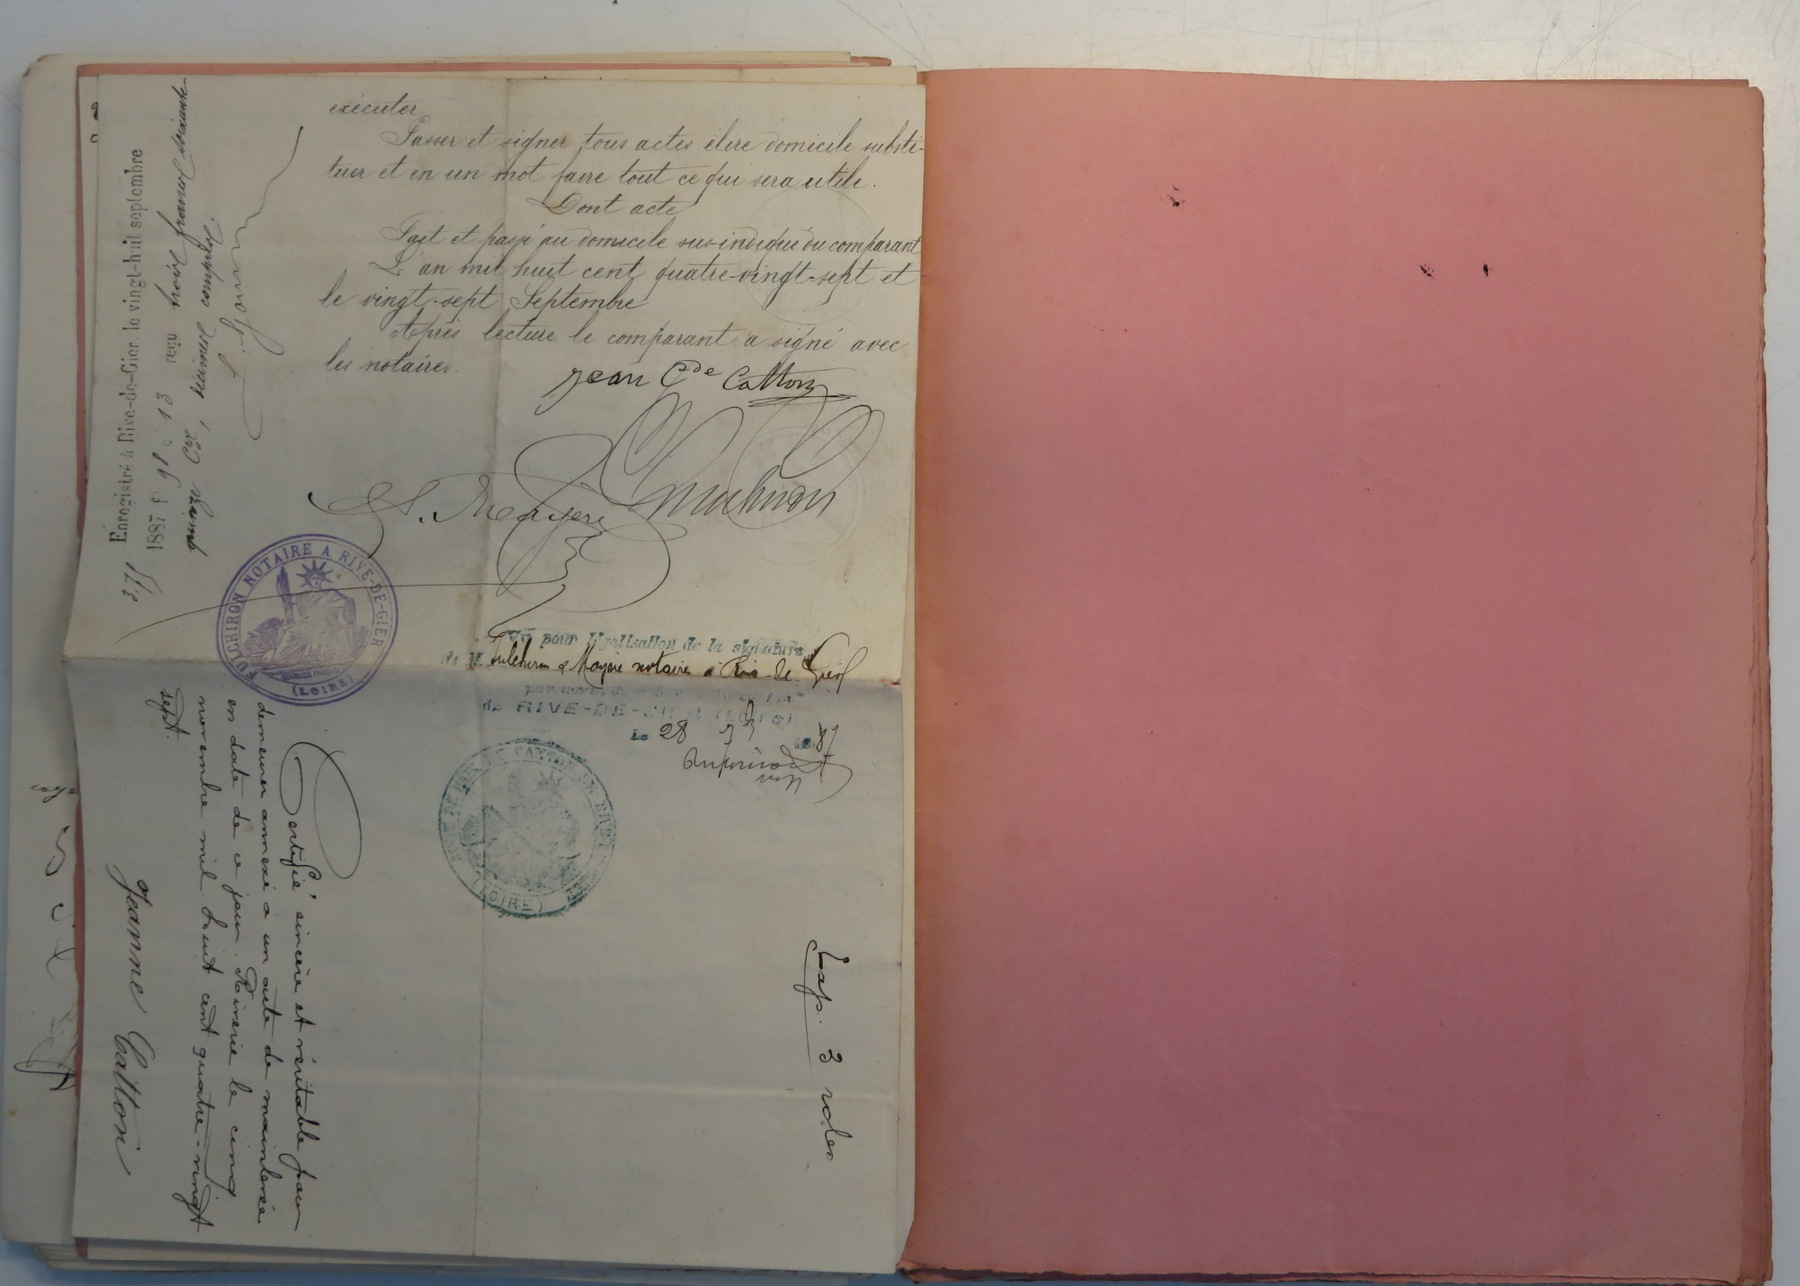 exécuter
Passer et signer tous actes élire domicile substi-
tuer et en un mot faire tout ce qui sera utile.
Dont acte
Fait et passé au domicile sus-indiqué du comparant
L'an mil huit cent quatre-vingt-sept et
le vingt-sept Septembre
Après lecture le comparant a signé avec
les notaires.
Jean Cde Cattoni
A. Mayere
Enregistré à Rive-de-Gier, le vingt-huit septembre
1887 f° 91 c 13 reçu trois francs soixante
quinze cent, décimes compris
FULCHIRON NOTAIRE A RIVE-DE-GIER
(LOIRE)
Vu pour légalisation de la signature
de M. Fulchiron & Mayere notaire à Rive de Gier
de RIVE-DE-GIER (Loire)
le 28 87
CANTON DE RIVE
(LOIRE)
Exp. 3 roles
Certifié sincère et véritable pour
demeurer annexé à un acte de mainlevée
en date de ce jour. Riverie le cinq
novembre mil huit cent quatre-vingt
sept.
Jeanne Cattoni